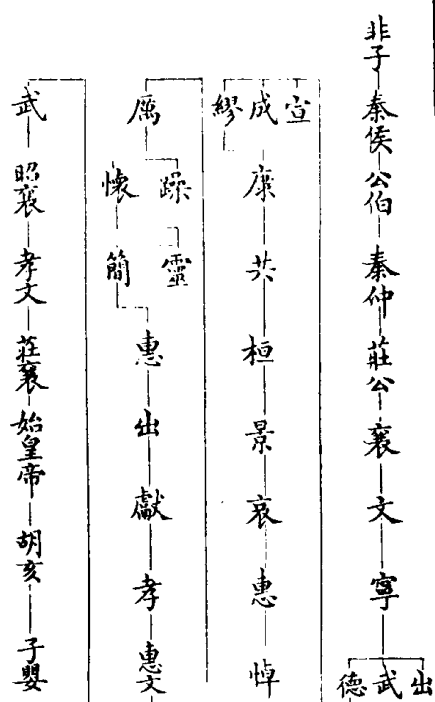 非子 秦侯 公伯 秦仲 莊公 襄 文 寧
出 武 德
宣 成 繆
康 共 桓 景 哀 惠 悼
厲
躁 懷
靈 簡
惠 出 獻 孝 惠文
武 昭襄 孝文 莊襄 始皇帝 胡亥 子嬰